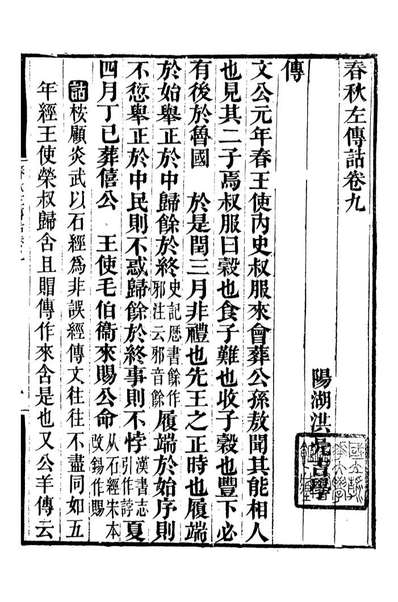 春秋左傳詁卷九
陽湖洪亮吉學
傳
文公元年春王使內史叔服來會葬公孫敖聞其能相人
也見其二子焉叔服曰穀也食子難也收子穀也豐下必
有後於魯國　於是閏三月非禮也先王之正時也履端
於始舉正於中歸餘於終史記歷書餘作邪注云邪音餘履端於始序則
不愆舉正於中民則不惑歸餘於終事則不悖漢書志引作誖夏
四月丁巳葬僖公　王使毛伯衞來賜公命從石經宋本改錫作賜
詁桉顧炎武以石經爲非誤經傳文往往不盡同如五
年經王使榮叔歸含且賵傳作來含是也又公羊傳云